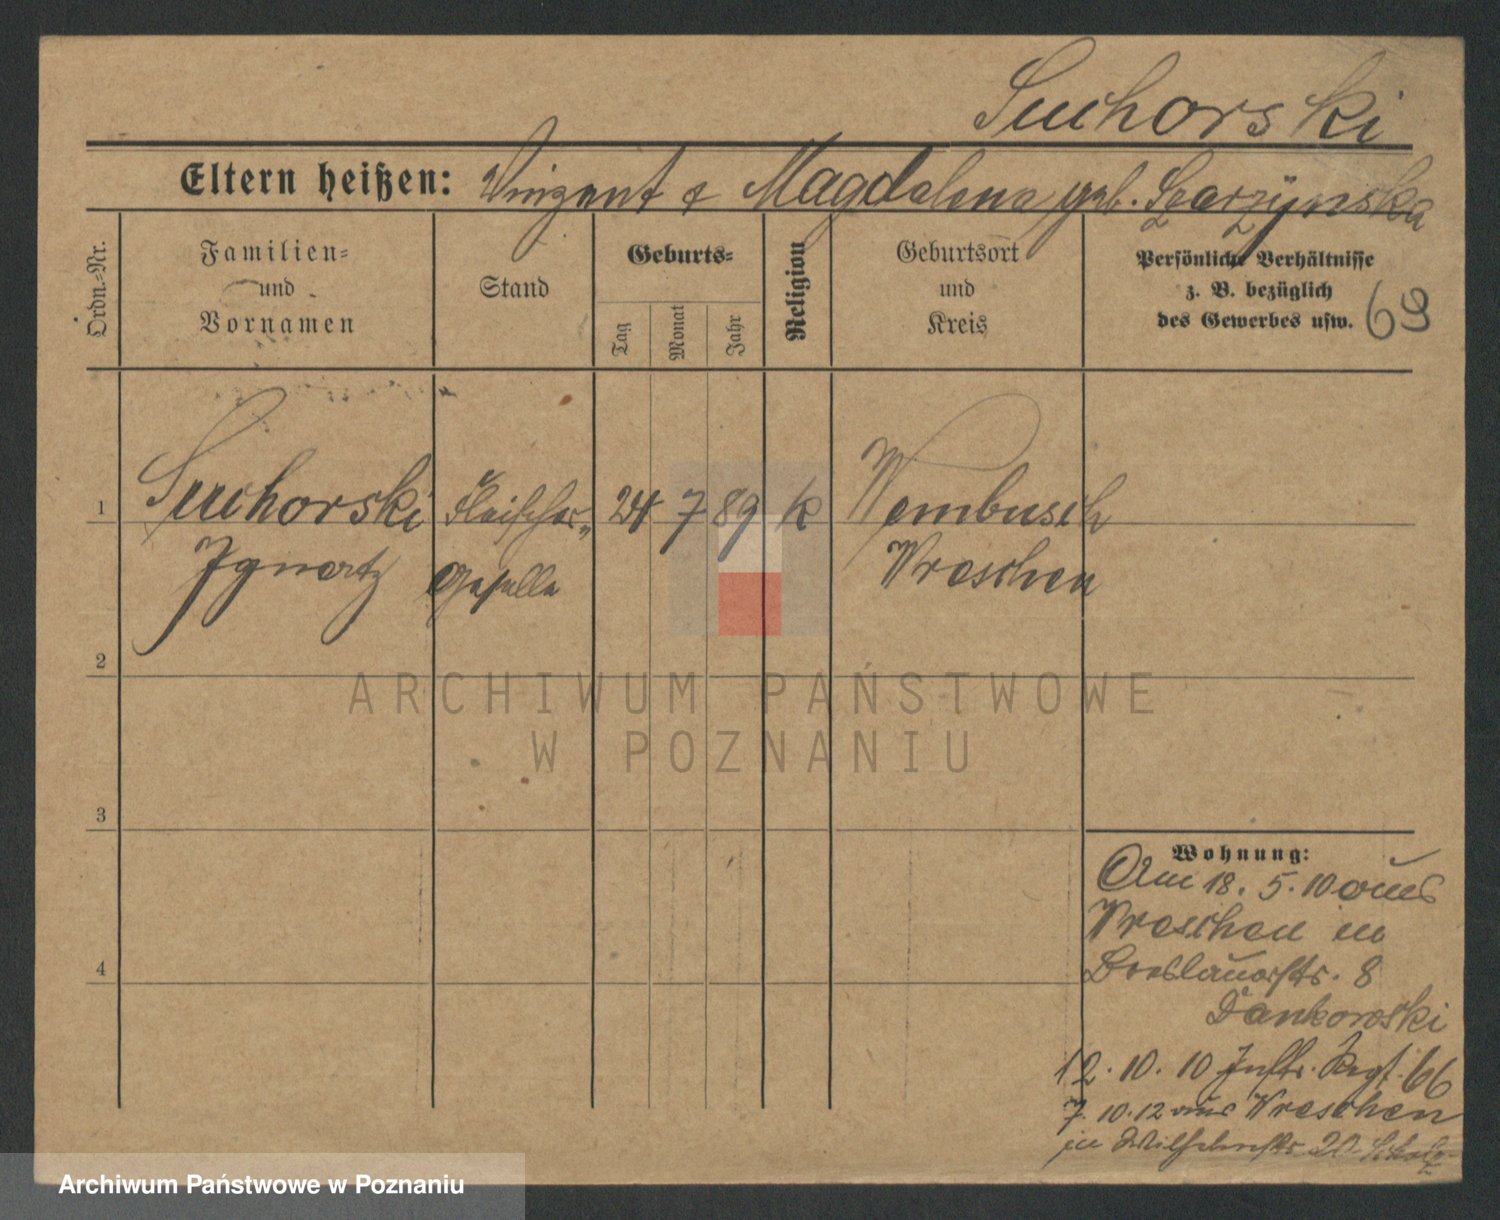 Suchorski
Eltern heißen: Vinzent & Magdalena geb. Skarzynska
Ordn.-Nr.
Familien-
und
Vornamen
Stand
Geburts-
Tag
Monat
Jahr
Religion
Geburtsort
und
Kreis
Persönliche Verhältnisse
z. B. bezüglich
des Gewerbes usw.
69
1
Suchorski
Ignatz
Fleischer-
geselle
24 7 89 k
Wembusch
Wreschen
2
3
4
Wohnung:
Am 18. 5. 10 aus
Wreschen in
Breslauerstr. 8
Dankowski
12. 10. 10 Inftr. Regt. 66
7. 10. 12 aus Wreschen
in 20
ARCHIWUM PAŃSTWOWE
W POZNANIU
Archiwum Państwowe w Poznaniu